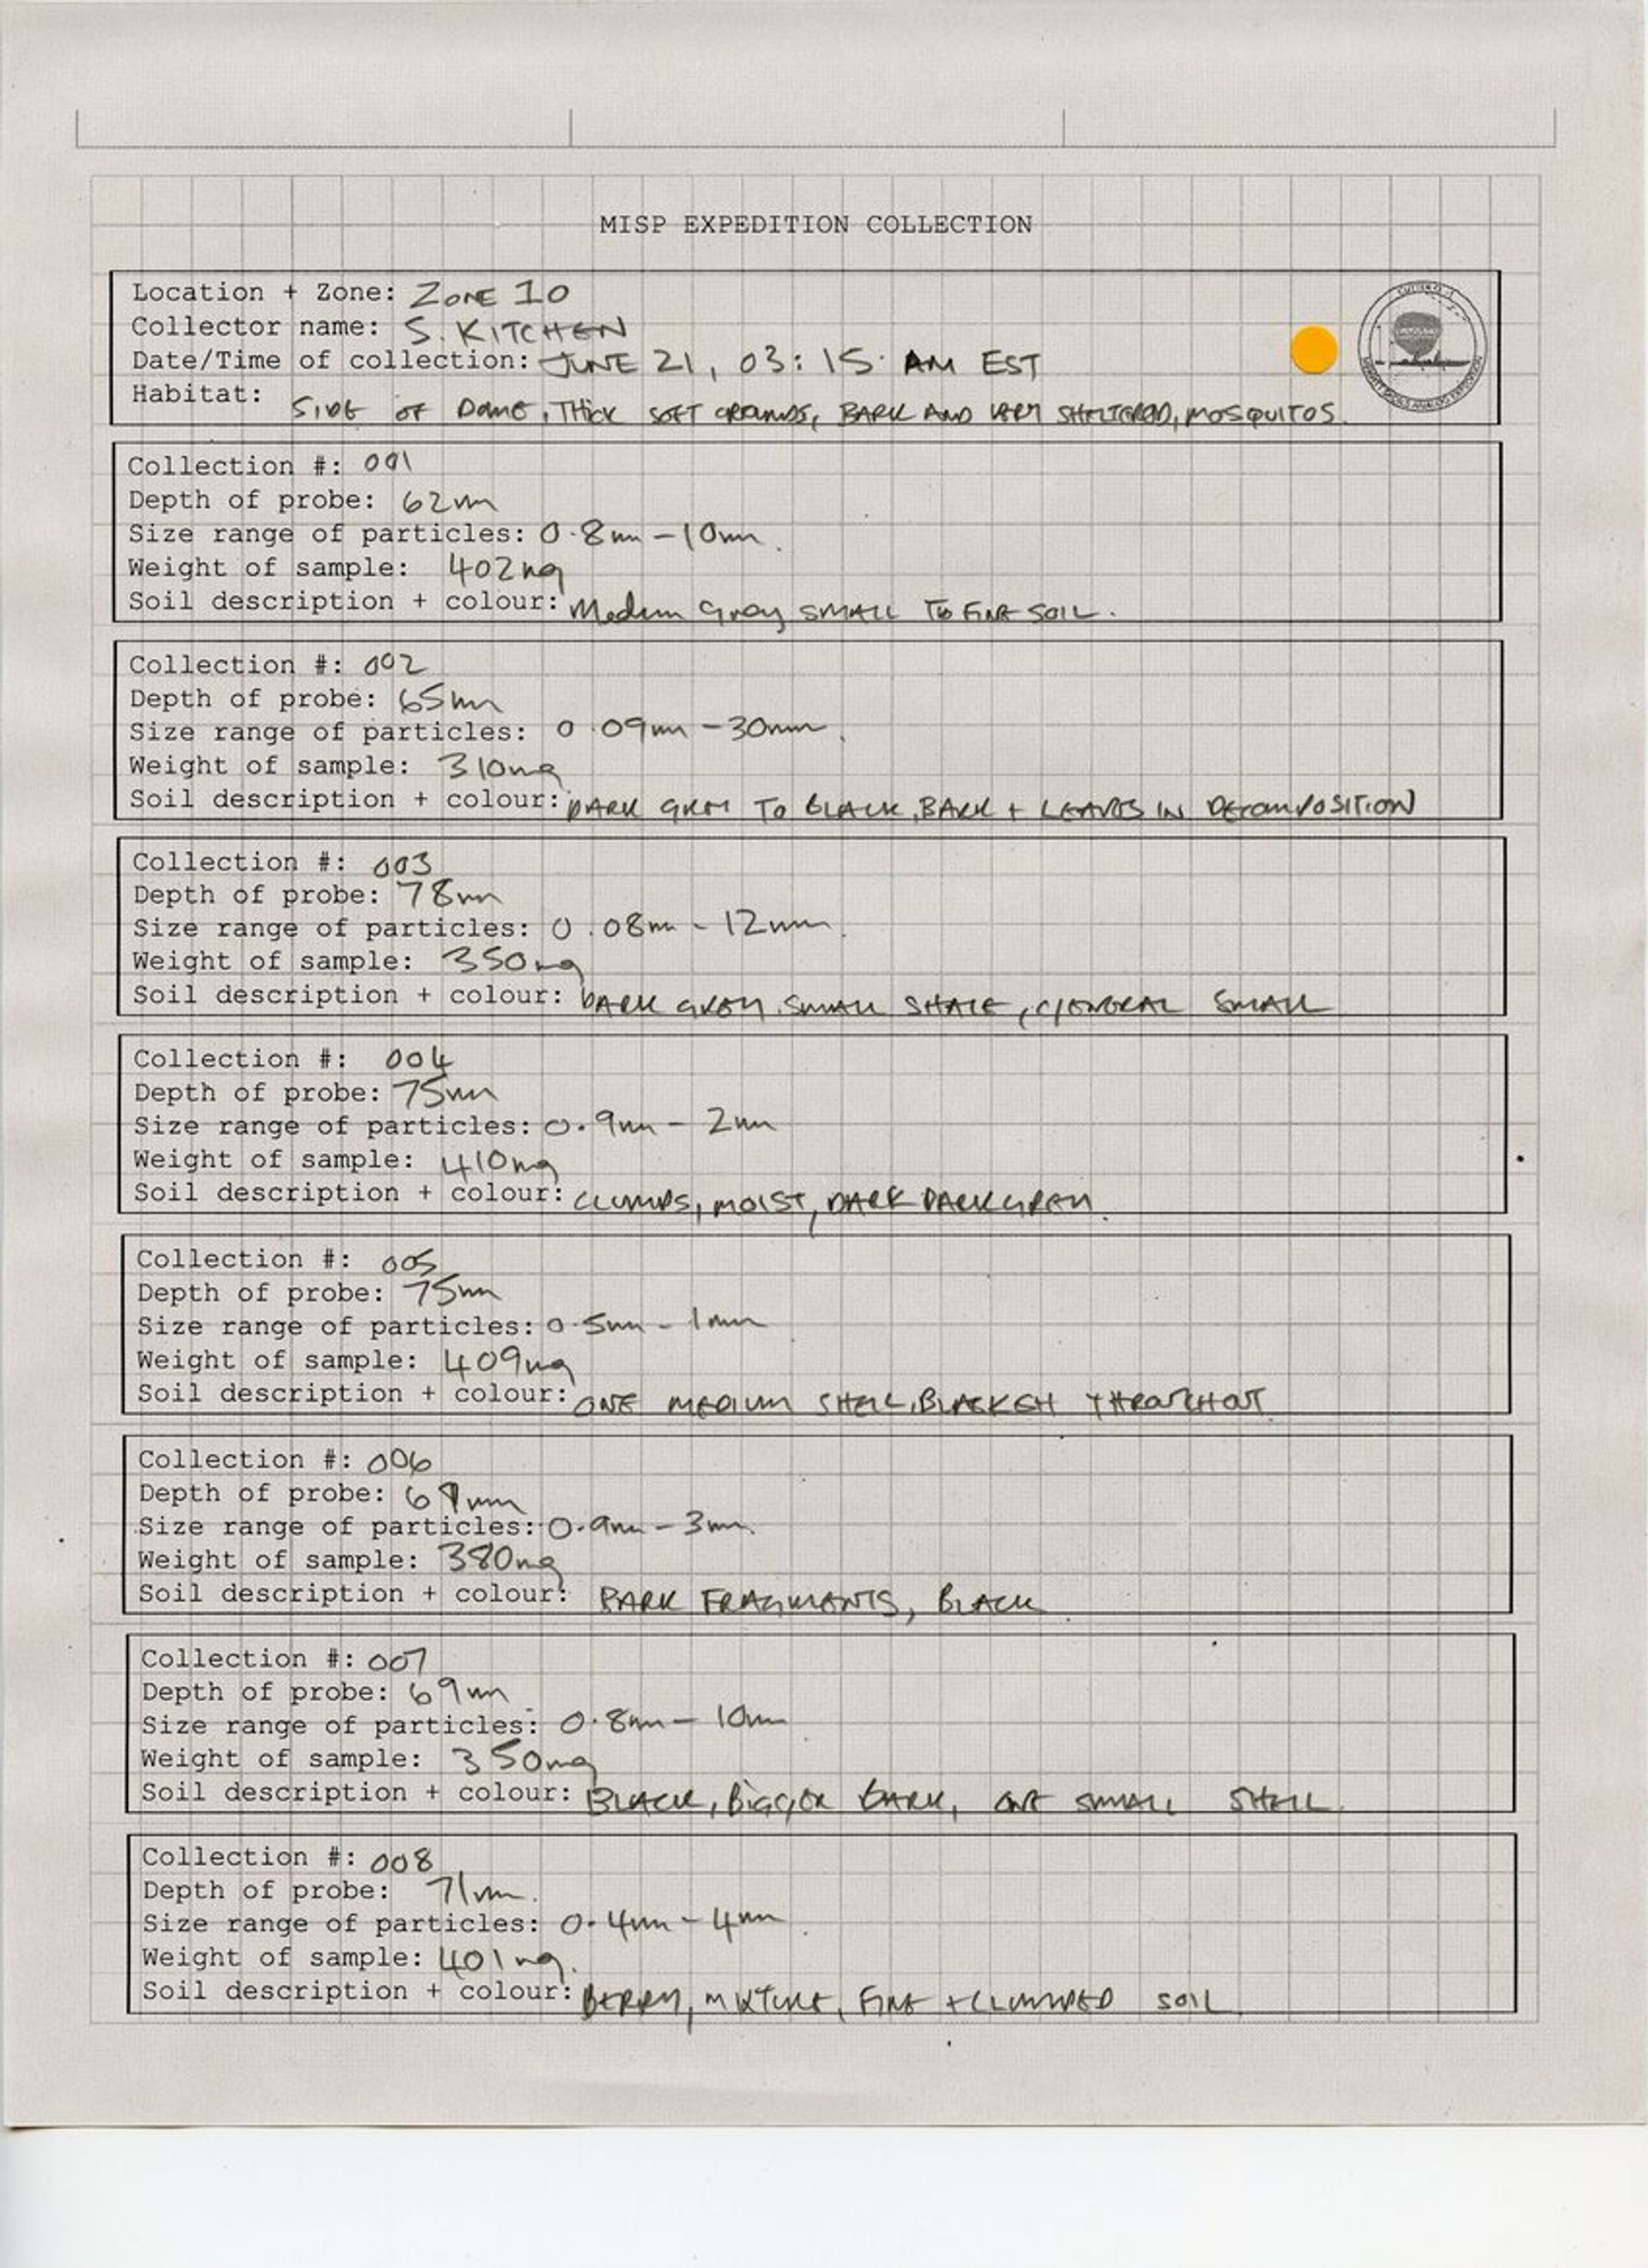 MISP EXPEDITION COLLECTION
Location + Zone: ZONE 10
Collector name: S. KITCHEN
Date/Time of collection: JUNE 21, 03:15 AM EST
Habitat: SIDE OF DOME, THICK SOFT GROUNDS, BARK AND VERY SHELTERED, MOSQUITOS.
Collection #: 001
Depth of probe: 62mm
Size range of particles: 0.8mm - 10mm.
Weight of sample: 402mg
Soil description + colour: Medium Gray SMALL TO FINE SOIL.
Collection #: 002
Depth of probe: 65mm
Size range of particles: 0.09mm - 30mm.
Weight of sample: 310mg
Soil description + colour: DARK GREY TO BLACK, BARK + LEAVES IN DECOMPOSITION
Collection #: 003
Depth of probe: 78mm
Size range of particles: 0.08mm - 12mm.
Weight of sample: 350mg
Soil description + colour: DARK GREY, SMALL SHALE, GENERAL SMALL
Collection #: 004
Depth of probe: 75mm
Size range of particles: 0.9mm - 2mm
Weight of sample: 410mg
Soil description + colour: CLUMPS, MOIST, DARK DARK GREY.
Collection #: 005
Depth of probe: 75mm
Size range of particles: 0.5mm - 1mm
Weight of sample: 409mg
Soil description + colour: ONE MEDIUM SHELL, BLACKISH THROUGHOUT
Collection #: 006
Depth of probe: 69mm
Size range of particles: 0.9mm - 3mm.
Weight of sample: 380mg
Soil description + colour: BARK FRAGMENTS, BLACK
Collection #: 007
Depth of probe: 69mm
Size range of particles: 0.8mm - 10mm
Weight of sample: 350mg
Soil description + colour: BLACK, BIGGER BARK, ONE SMALL SHELL.
Collection #: 008
Depth of probe: 71mm.
Size range of particles: 0.4mm - 4mm.
Weight of sample: 401mg.
Soil description + colour: BERRY, MIXTURE, FINE + CLUMPED SOIL